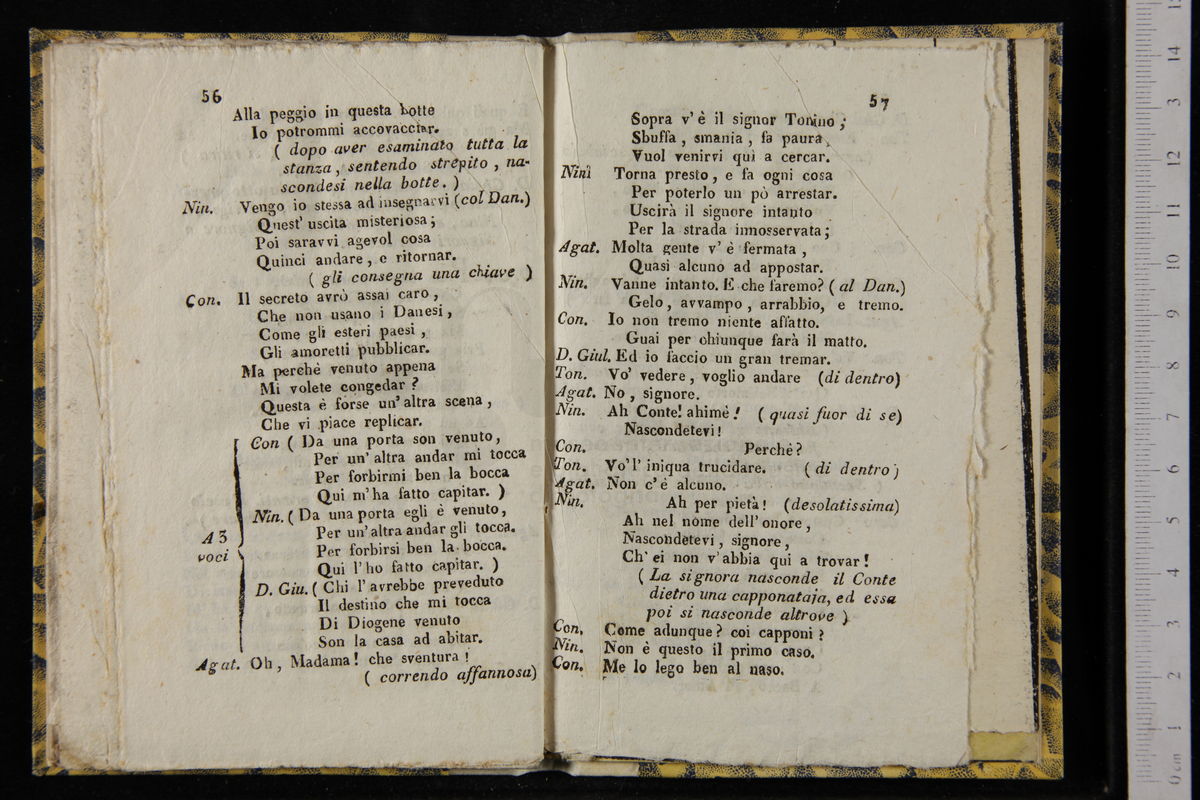 56
Alla peggio in questa botte
Io potrommi accovacciar.
( dopo aver esaminato tutta la
stanza, sentendo strepito, na-
scondesi nella botte. )
Nin. Vengo io stessa ad insegnarvi (col Dan.)
Quest' uscita misteriosa;
Poi saravvi agevol cosa
Quinci andare, e ritornar.
( gli consegna una chiave )
Con. Il secreto avrò assai caro,
Che non usano i Danesi,
Come gli esteri paesi,
Gli amoretti pubblicar.
Ma perchè venuto appena
Mi volete congedar?
Questa è forse un' altra scena,
Che vi piace replicar.
A 3 voci
Con ( Da una porta son venuto,
Per un' altra andar mi tocca
Per forbirmi ben la bocca
Qui m'ha fatto capitar. )
Nin. ( Da una porta egli è venuto,
Per un' altra andar gli tocca.
Per forbirsi ben la bocca.
Qui l'ho fatto capitar. )
D. Giu. ( Chi l' avrebbe preveduto
Il destino che mi tocca
Di Diogene venuto
Son la casa ad abitar.
Agat. Oh, Madama! che sventura!
( correndo affannosa)
57
Sopra v' è il signor Tonino;
Sbuffa, smania, fa paura,
Vuol venirvi quì a cercar.
Nini Torna presto, e fa ogni cosa
Per poterlo un pò arrestar.
Uscirà il signore intanto
Per la strada innosservata;
Agat. Molta gente v' è fermata,
Quasi alcuno ad appostar.
Nin. Vanne intanto. E che faremo? ( al Dan.)
Gelo, avvampo, arrabbio, e tremo.
Con. Io non tremo niente affatto.
Guai per chiunque farà il matto.
D. Giul. Ed io faccio un gran tremar.
Ton. Vo' vedere, voglio andare (di dentro)
Agat. No, signore.
Nin. Ah Conte! ahimè! ( quasi fuor di se)
Nascondetevi!
Con. Perchè?
Ton. Vo' l' iniqua trucidare. ( di dentro )
Agat. Non c' é alcuno.
Nin. Ah per pietà! (desolatissima)
Ah nel nome dell' onore,
Nascondetevi, signore,
Ch' ei non v'abbia qui a trovar!
( La signora nasconde il Conte
dietro una capponataja, ed essa
poi si nasconde altrove )
Con. Come adunque? coi capponi?
Nin. Non è questo il primo caso.
Con. Me lo lego ben al naso.